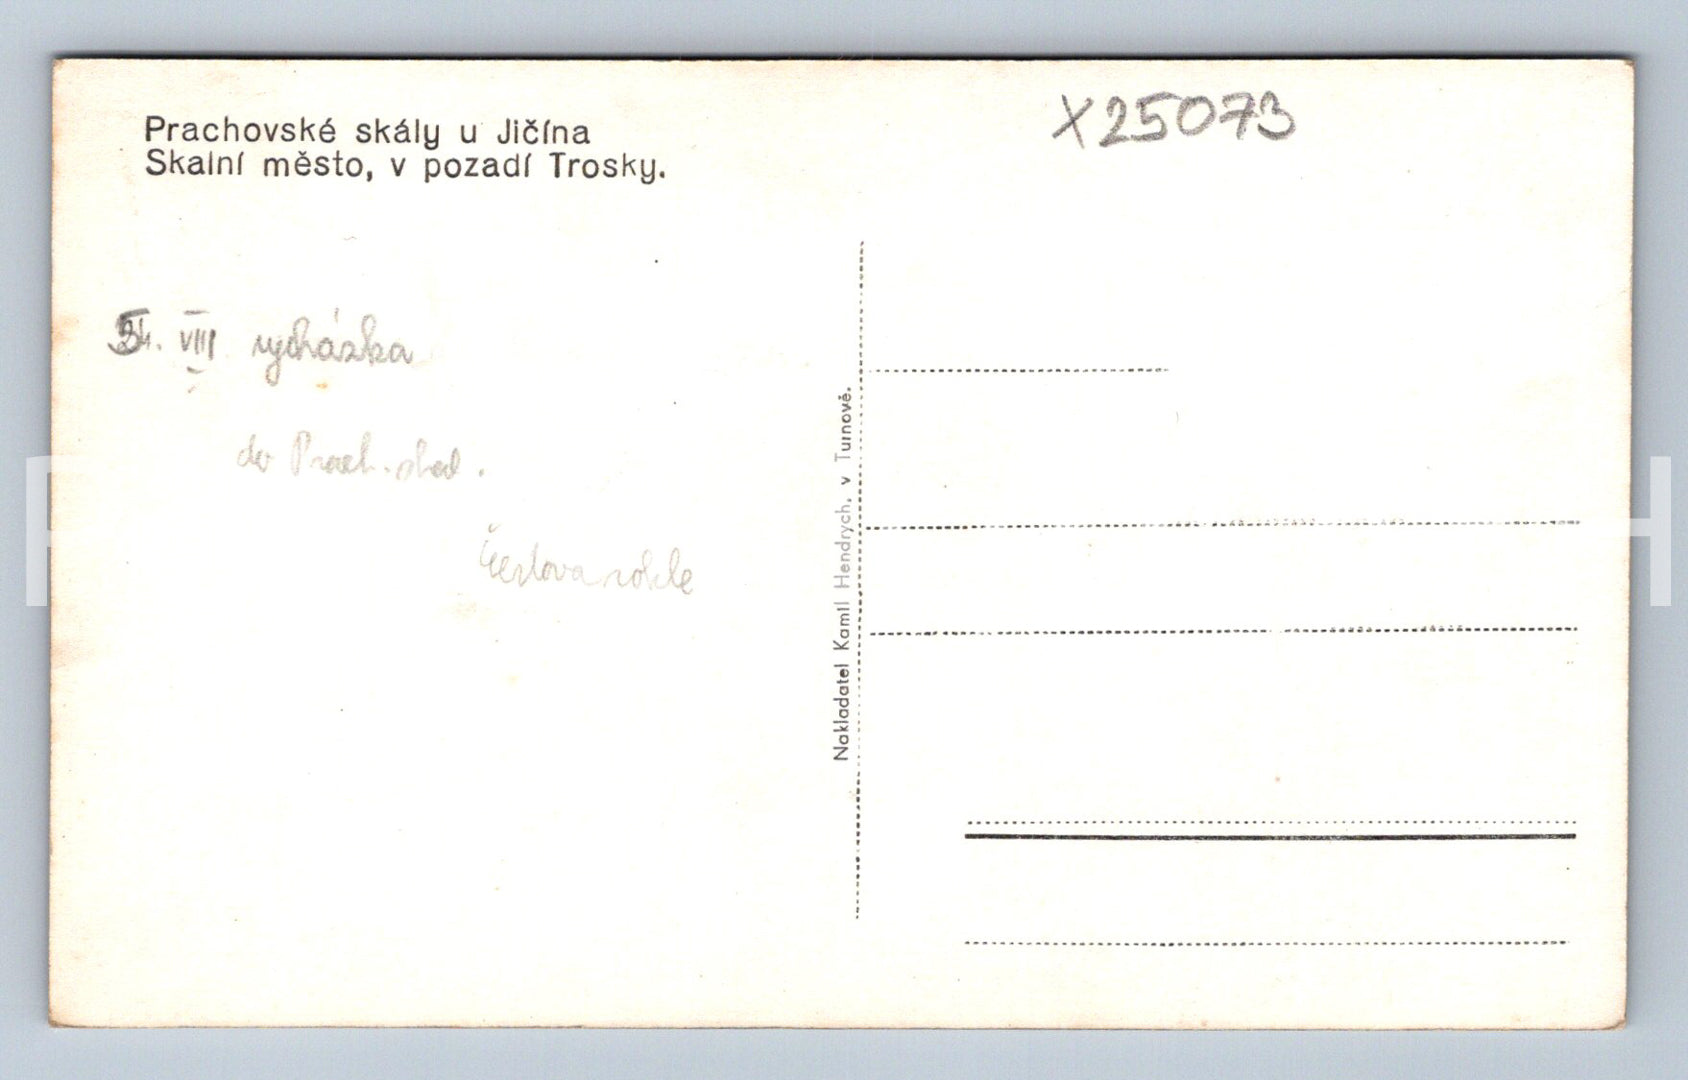 Prachovské skály u Jičína
Skalní město, v pozadí Trosky.
X25073
VIII vycházka
do Prach. skal.
Čertova rokle
Nakladatel Kamil Hendrych, v Turnově.